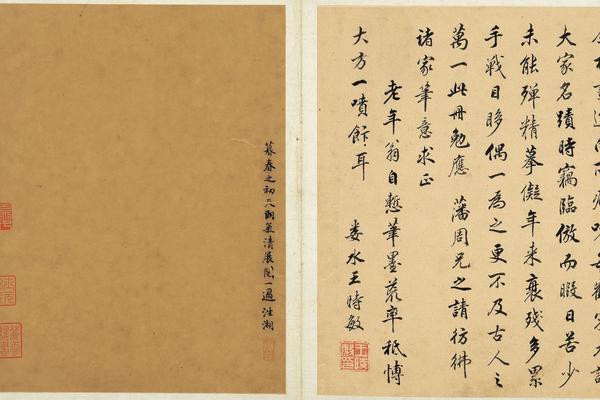 大家名蹟時竊臨倣而暇日苦少
未能殫精摹儗年来衰残多累
手戰目眵偶一為之更不及古人之
萬一此冊勉應 藩周兄之請彷彿
诸家筆意求正
老年翁自慙筆墨荒率秖慱
大方一噴飰耳 婁水王時敏
暮春之初天朗氣清展閱一過